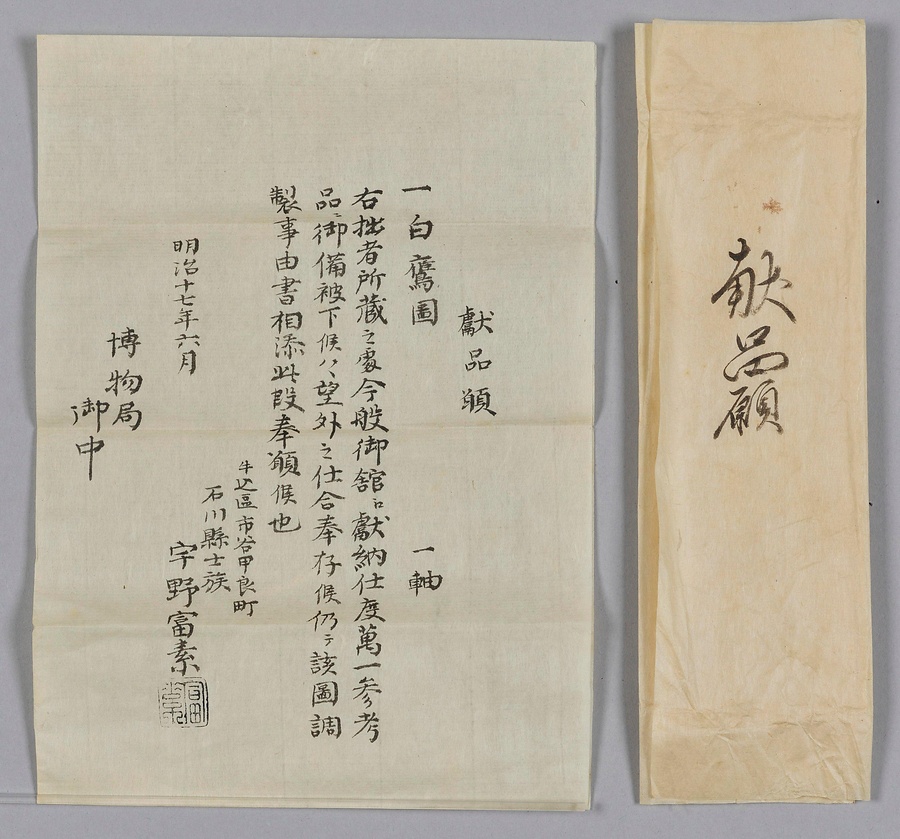 献品願
獻品願
一白鷹圖　一軸
右拙者所藏之處今般御舘ヘ獻納仕度萬一参考
品ニ御備被下候ハヽ望外之仕合奉存候仍テ該圖調
製事由書相添此段奉願候也
牛込區市谷甲良町
石川縣士族
宇野富素
明治十七年六月
博物局
御中